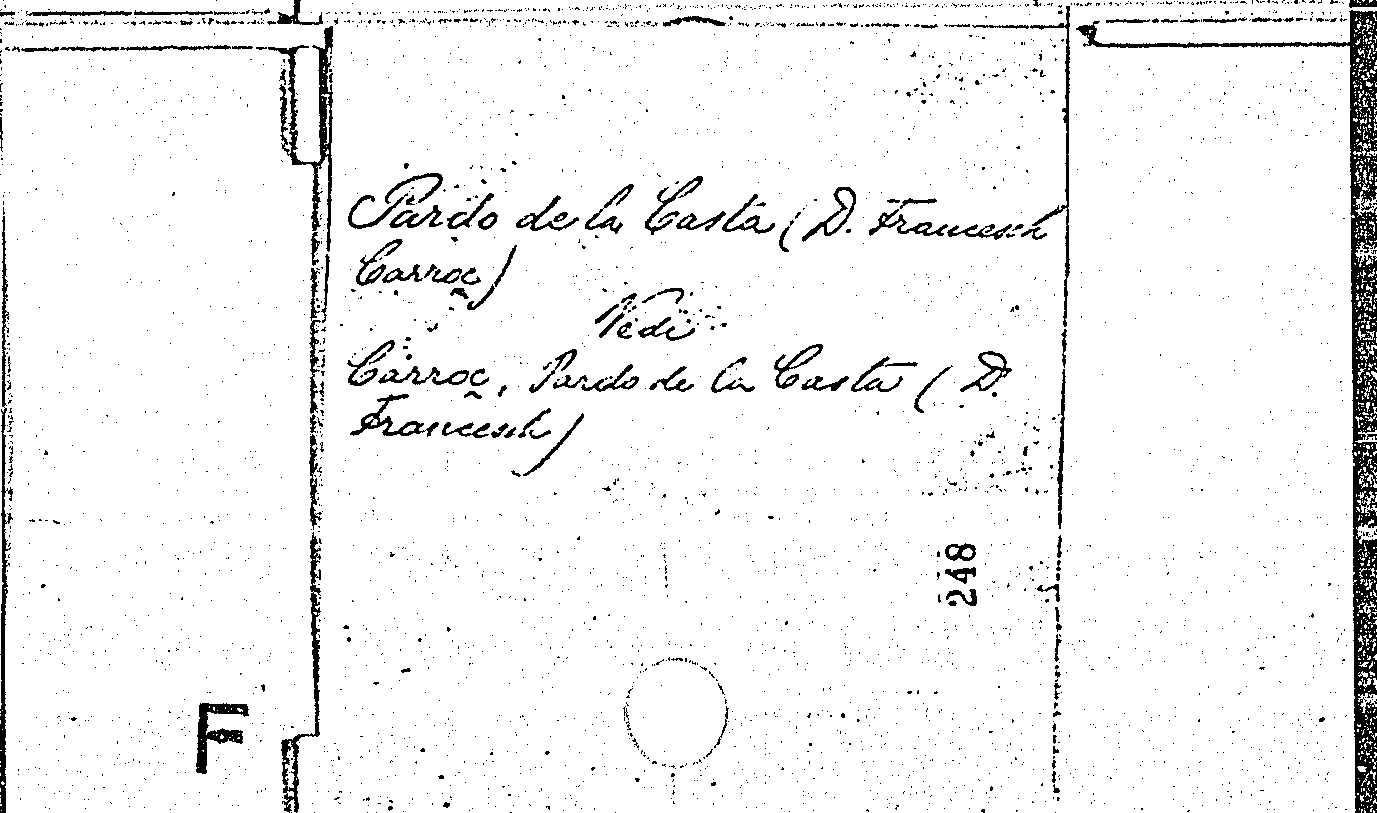 Pardo de la Casta (D. Francesch
Carroç)
Vedi
Carroç, Pardo de la Casta (D.
Francesch)
248
F